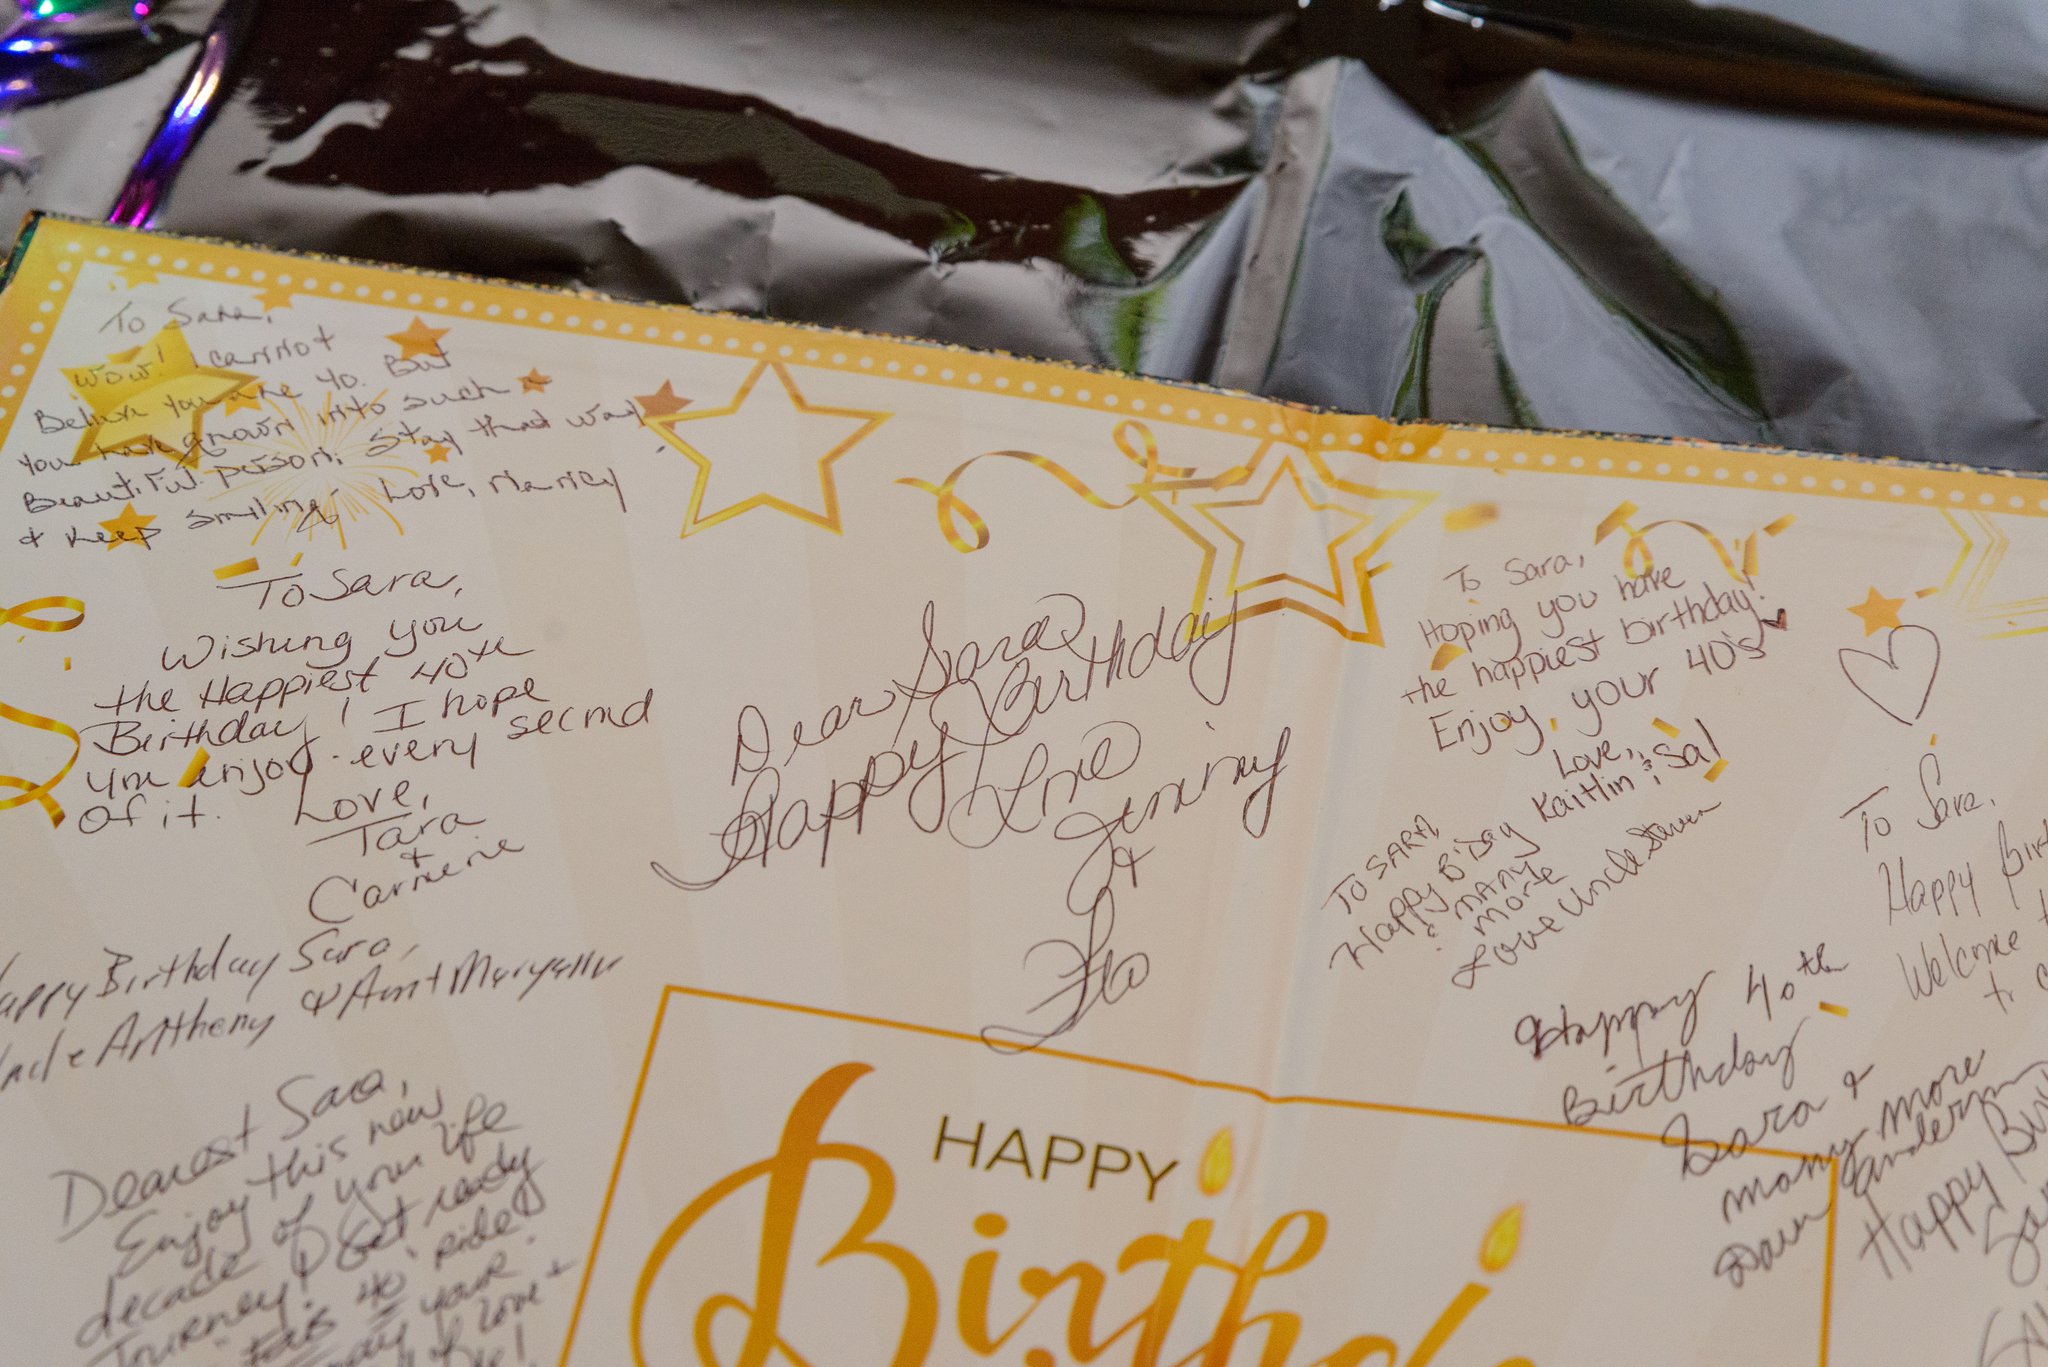 To Sara,
Wow! I cannot
Believe you are 40. But
you have grown into such a
Beautiful person. Stay that way
& keep smiling Love, Nancy
To Sara,
Wishing you
the Happiest 40th
Birthday! I hope
you enjoy every second
of it.
Love,
Tara
+
Carmine
Happy Birthday Sara,
Uncle Anthony & Aunt Maryann
Dearest Sara,
Enjoy this new
decade of your life
Journey! Get ready
40 ride!
your
love +
Dear Sara
Happy Birthday
Love
Jimmy
+
Flo
To Sara,
Hoping you have
the happiest birthday!
Enjoy your 40's
Love,
Kaitlin & Sal
To SARA
Happy B'Day
& MANY
more
Love Uncle Steven
To Sara,
Happy Birt
Welcome t
Happy 40th
Birthday
Sara &
many more
Happy Bi
HAPPY
Birthd